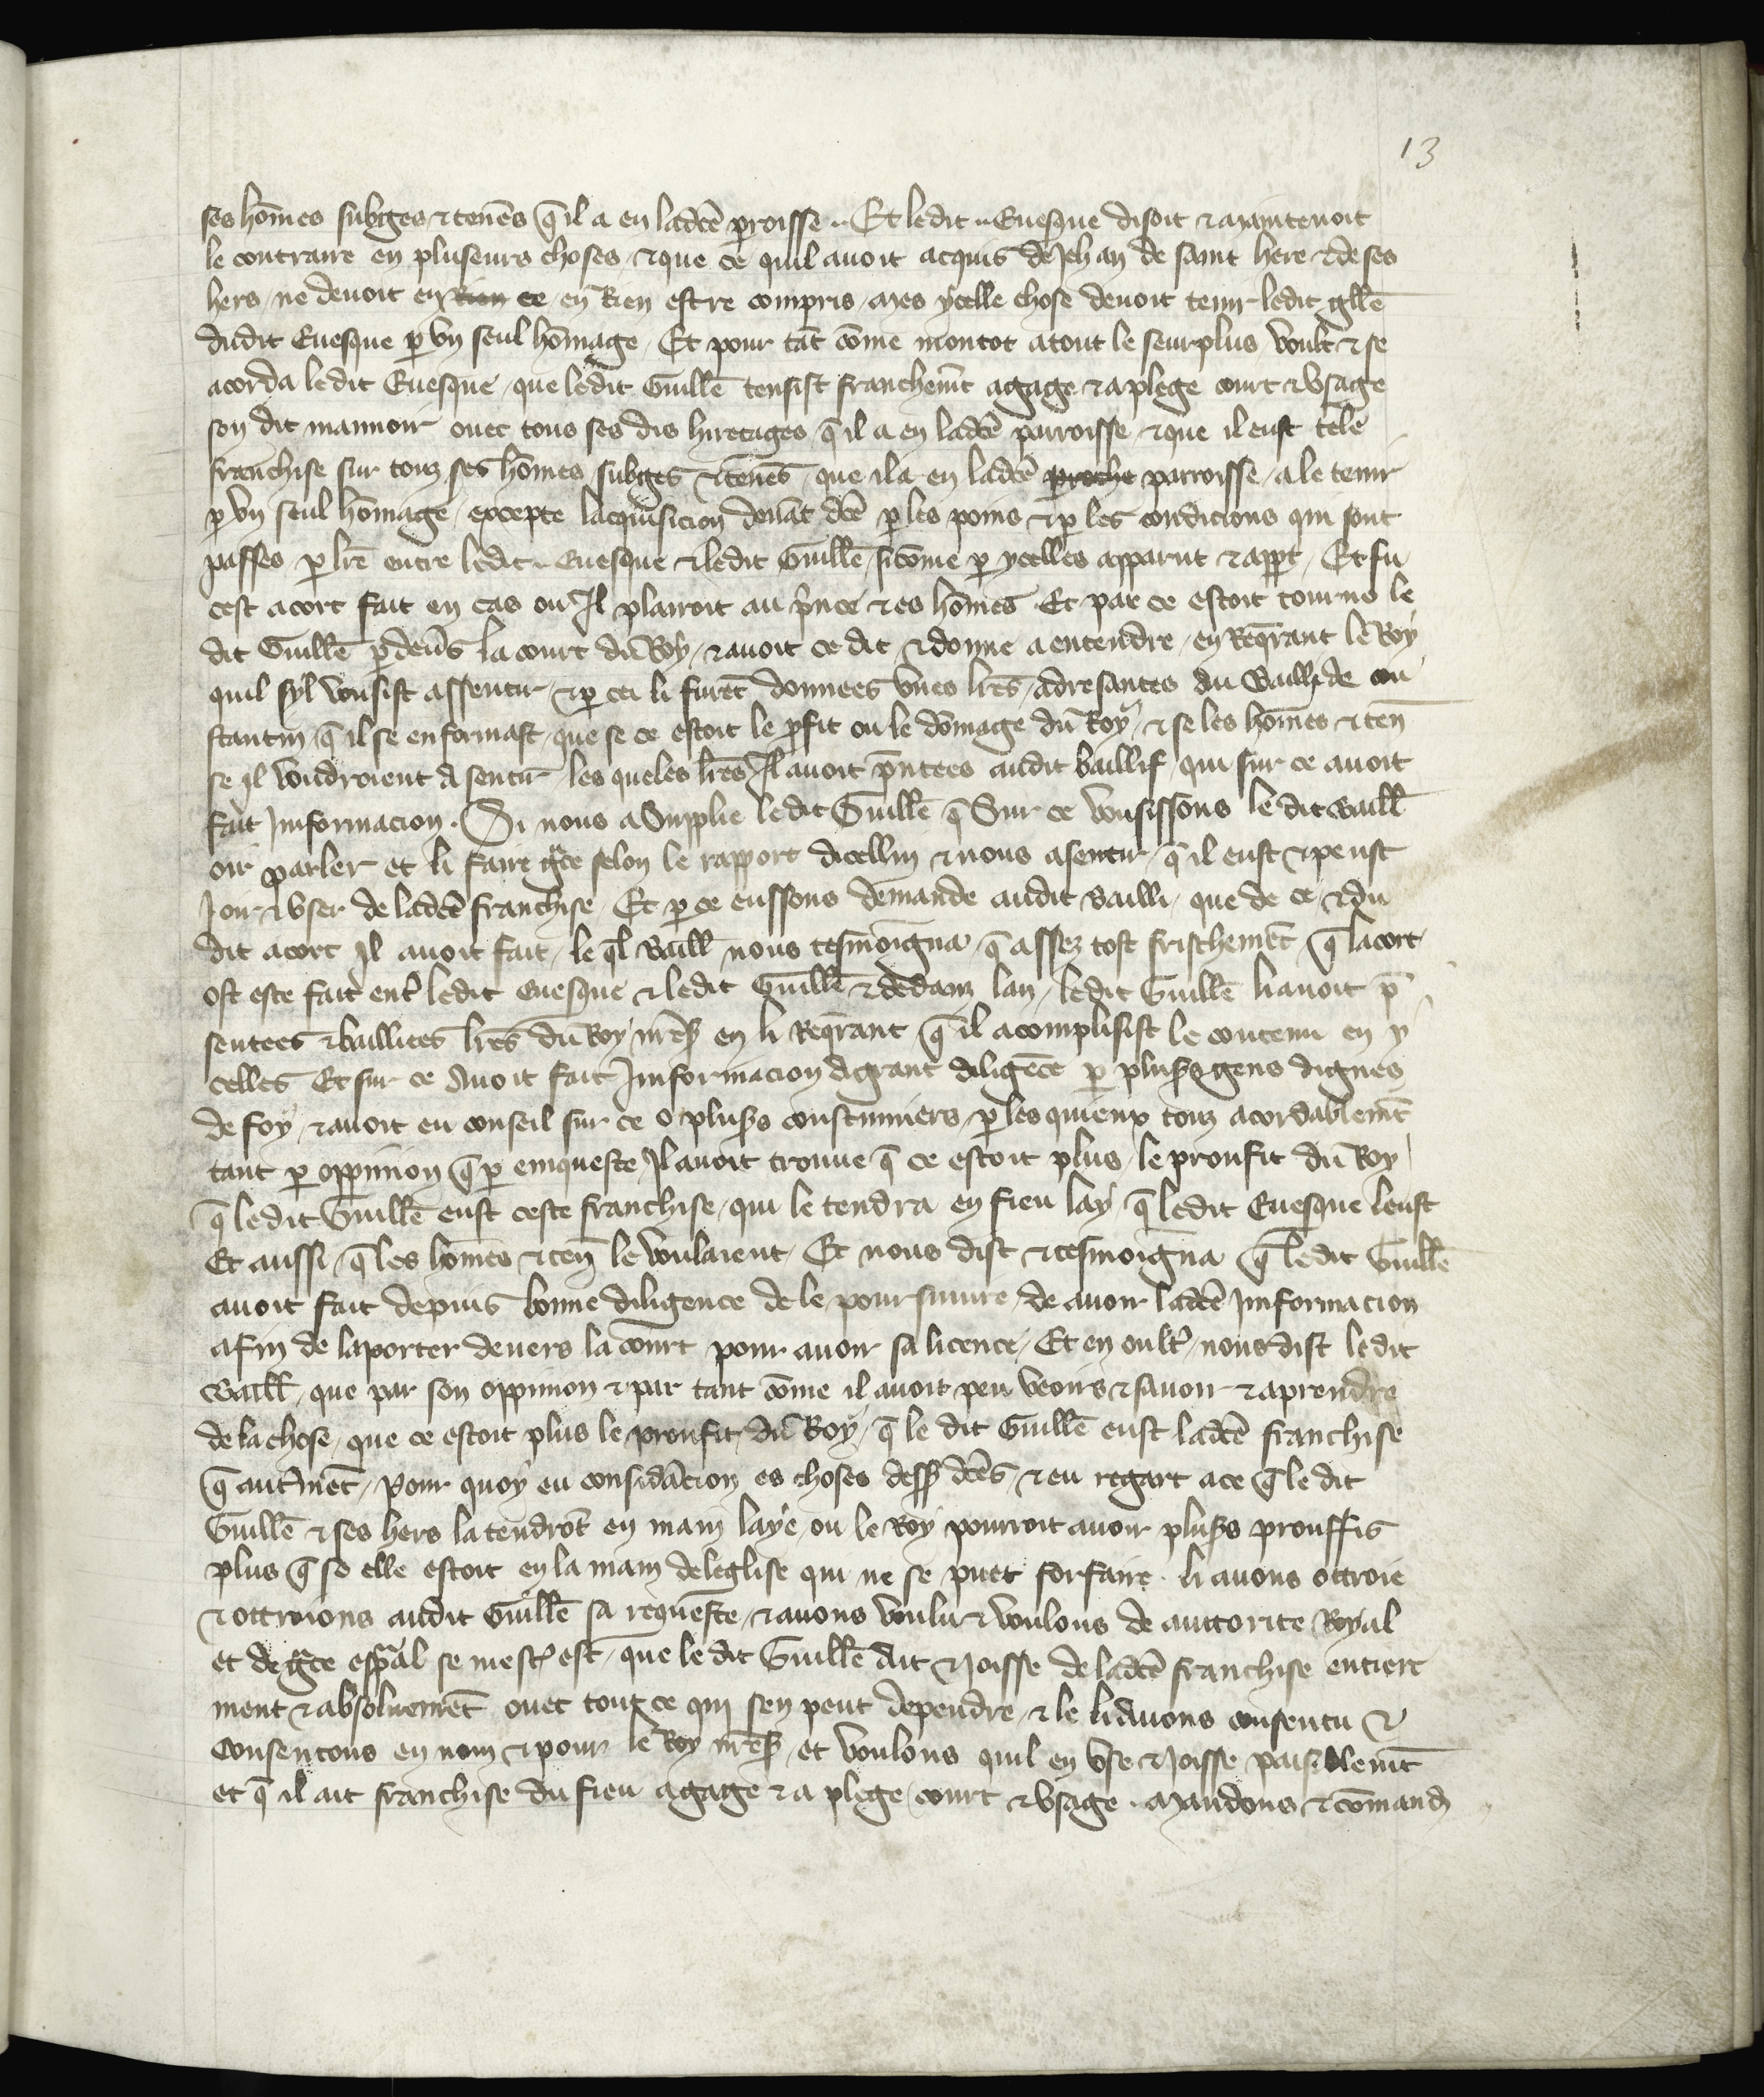 13
ses hom̄es subges ⁊ ten̄es q̄ il a en ladc̄e p̄roisse .. Et ledit .. Euesque disoit ⁊ maintenoit
le contraire en pluseurs choses / ⁊ que ce quil auoit acquis de Jehan de saint here ⁊ de ses
hers / ne deuoit en rien ce / en Rien estre compris / mes ycelle chose deuoit tenir ledit gll̄e
dudit Euesque p̱ vn seul hom̄age / Et pour tāt cōme montot atout le seurplus / voult ⁊ se
acorda ledit Euesque / que ledit Guill̄e tensist franchem̄t agage ⁊ aplege court ⁊ vsage
son dit mannoir ouec tous ses dis hiretages / q̄ il a en ladc̄e parroisse / ⁊ que il eust tele
franchise sur touz ses hom̄es subges ⁊ ten̄es / que il a en ladc̄e proche parroisse / a le tenir
p̱ vn seul hom̄age / excepte lacquisicion deuāt dc̄e p̱ les poins ⁊ p̱ les condicions qui sont
passes p̱ lr̄e entre ledit .. Euesque ⁊ ledit Guill̄e / sicōme p̱ ycelles apparut ⁊ appt̄ / Et fu
cest acort fait en cas ou Il plairoit au p̄nce ⁊ es hom̄es Et par ce estoit tourne le
dit Guill̄e p̱deūs la court du Roy / ⁊ auoit ce dit ⁊ donne a entendre / en Req̄rant le Roy
quil syl vousist assentir / ⁊ p̱ cen li furēt donnees vnes lr̄es / adresantes au Bailli de cou
stantin / q̄ il se enformast / que se ce estoit le p̱fit ou le dōmage du Roy / ⁊ se les hom̄es ⁊ ten̄
se Il voudroient Asentir / les queles lr̄es Il auoit p̄ntees audit baillif / qui sur ce auoit
fait Informacion . Si nous a Supplie ledit Guill̄e q̄ Sur ce vousissons le dit Baill̄
oir parler et li faire gr̄ce selon le rapport dicelluy ⁊ nous asentir / q̄ il eust ⁊ peust
Joir ⁊ vser de ladc̄e franchise / Et p̱ ce eussons demande audit Bailli / que de ce / ⁊ du
dit acort Il auoit fait / le q̄l Baill̄ nous tesmoigna / q̄ assez tost frischemēt q̄ lacort
ost este fait ent̄ ledit Euesque ⁊ ledit Guill̄e ⁊ dedanz lan / ledit Guill̄e li auoit p̄
sentees ⁊ baillies lr̄es du Roy nr̄es̄ en li Req̄rant q̄ il acomplisist le contenu en y
celles Et sur ce Auoit fait Informacion A grant diligēce p̱ plus̄s gens dignes
de foy / ⁊ auoit eu conseil sur ce o plus̄s coustumiers / p̱ les quieux touz acordablemēt
tant p̱ oppinion q̄ p̱ enqueste Il auoit trouue q̄ ce estoit plus / le proufit du Roy
q̄ ledit Guill̄e eust ceste franchise / qui le tendra en fieu lay q̄ ledit Euesque leust
Et aussi / q̄ les hom̄es ⁊ ten̄ le voulaient / Et nous dist ⁊ tesmoigna q̄ ledit Guill̄e
auoit fait depuis bonne diligence de le poursuiure / de auoir ladc̄e Informacion
afin de laporter deuers la court pour auoir sa licence / Et en oult̄ / nous dist ledit
Baill̄ / que par son oppinion ⁊ par tant cōme il auoit peu veoirs ⁊ sauoir ⁊ aprendre
de la chose / que ce estoit plus le proufit / du Roy / q̄ le dit Guill̄e eust ladc̄e franchise
q̄ autrem̄ēt / Pour quoy eu considāciou es choses dess̄ dc̄es / ⁊ eu regart a ce q̄ le dit
Guill̄e ⁊ ses hers la tendrōt en main laye / ou le Roy pourroit auoir plus̄s prouffis
plus q̄ se elle estoit en la main deleglise qui ne se puet forfaire . li auons ottroie
⁊ ottroions audit Guill̄e sa requeste / ⁊ auons voulu ⁊ voulons de auttorite Royal
et de gr̄ce esp̱al se mest̄ est / que le dit Guill̄e Ait ⁊ Joisse de ladc̄e franchise entiere
ment ⁊ absoluemēt ouec tout ce qui sen peut dependre / ⁊ le li Auons consentu ⁊
Consentons en nom ⁊ pour le Roy nr̄es̄ / et voulons quil en vse ⁊ Joisse paisiblem̄t
et q̄ il ait franchise du fieu agage ⁊ a plege / court ⁊ vsage . Mandons ⁊ cōmand̄